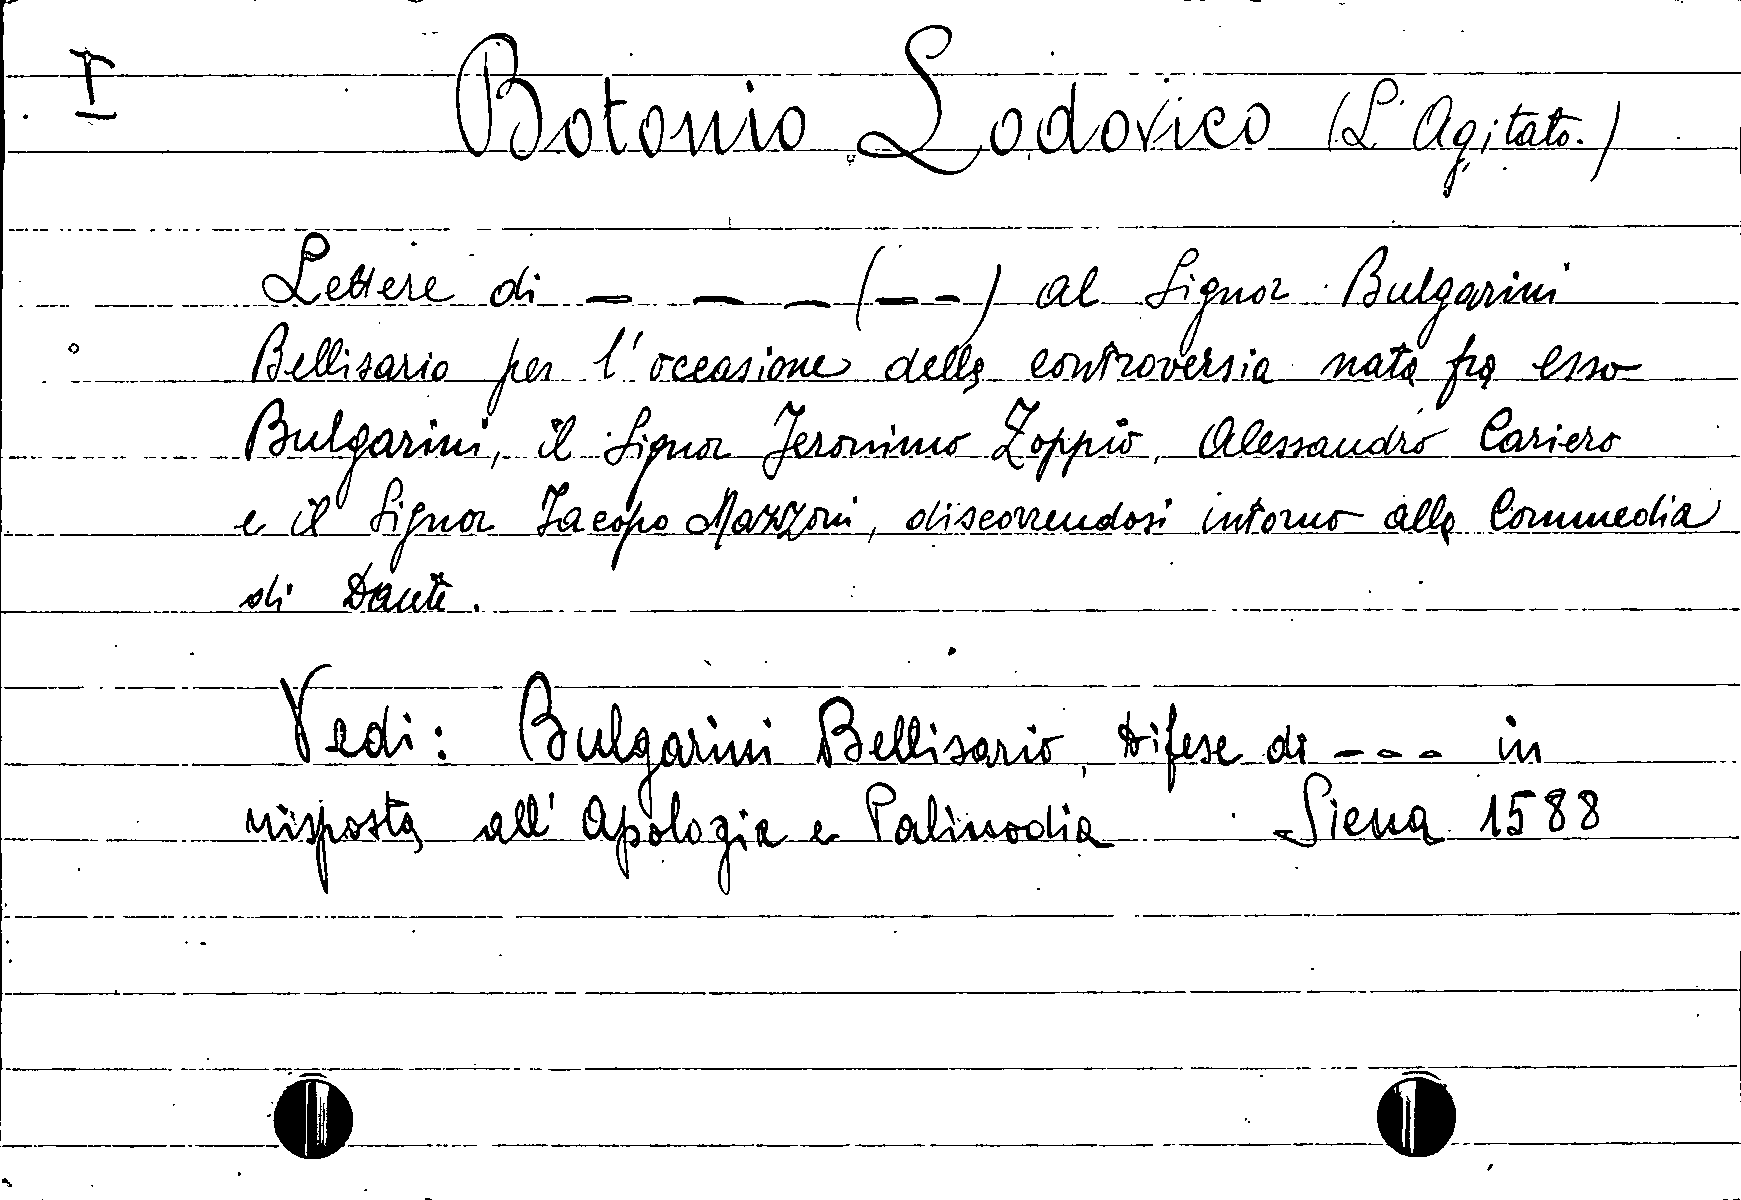 I Botonio Lodovico (L'Agitato.)
Lettere di — — — (— —) al Signor Bulgarini
Bellisario per l'occasione della controversia nata fra esso
Bulgarini, il Signor Jeronimo Zoppio, Alessandro Cariero
e il Signor Jacopo Mazzoni, discorrendosi intorno alla Commedia
di Dante.
Vedi: Bulgarini Bellisario, Difese di — — — in
risposta all'Apologia e Palinodia Siena 1588